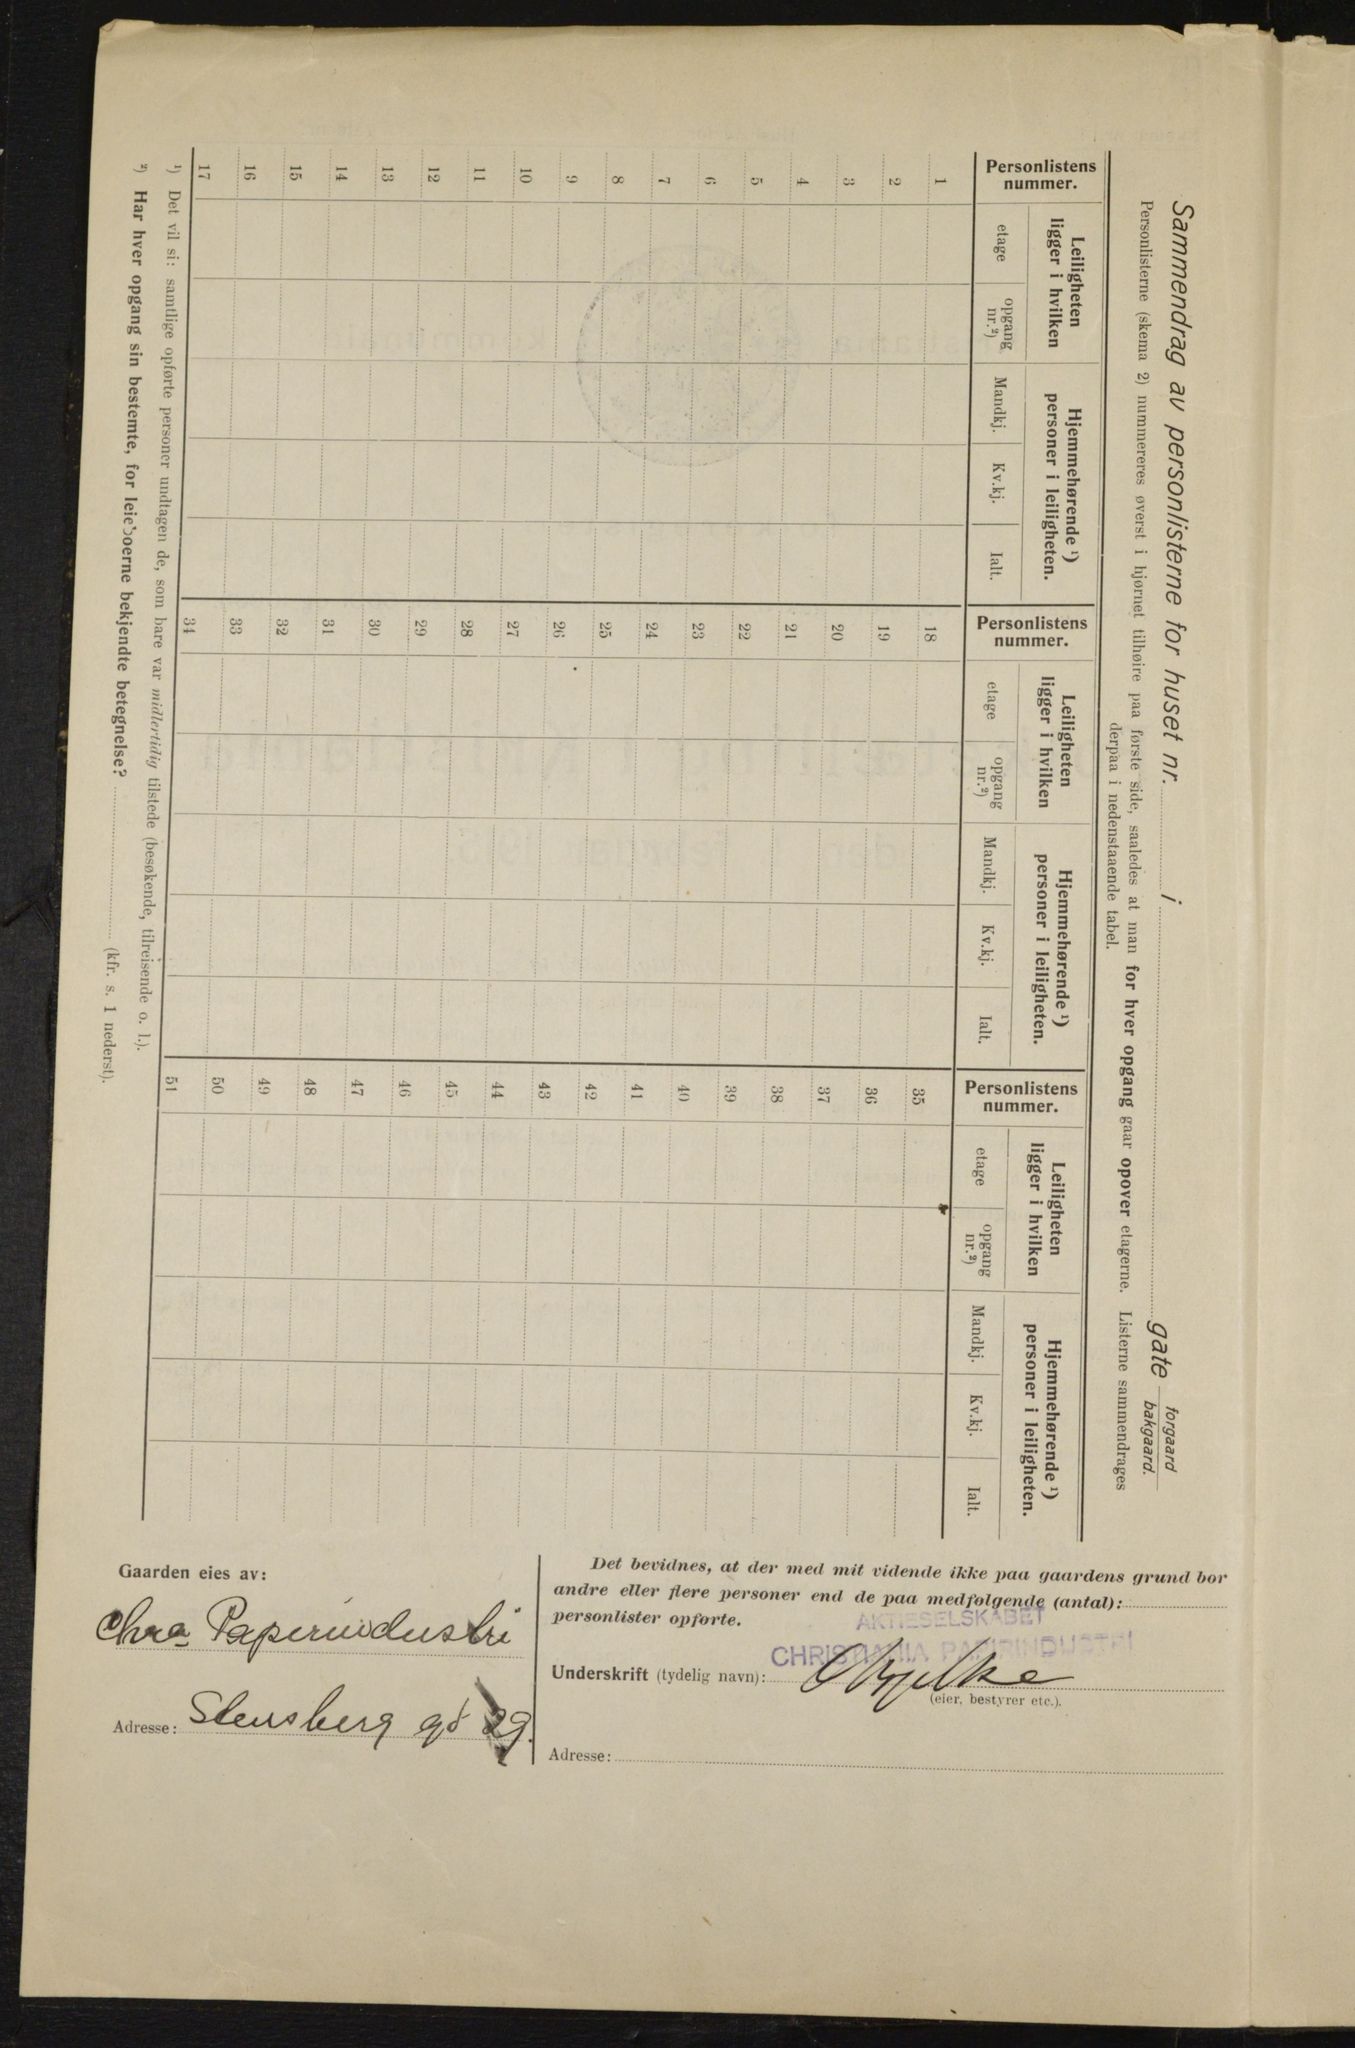 Sammendrag av personlisterne for huset nr. i gate forgaard bakgaard.
Personlisterne (skema 2) nummereres øverst i hjørnet tilhøire paa første side, saaledes at man for hver opgang gaar opover etagerne. Listerne sammendrages
derpaa i nedenstaaende tabel.
Personlistens nummer.
Leiligheten ligger i hvilken
Hjemmehørende ¹) personer i leiligheten.
Personlistens nummer.
Leiligheten ligger i hvilken
Hjemmehørende ¹) personer i leiligheten.
Personlistens nummer.
Leiligheten ligger i hvilken
Hjemmehørende ¹) personer i leiligheten.
etage opgang nr.²) Mandkj. Kv.kj. Ialt. etage opgang nr.²) Mandkj. Kv.kj. Ialt. etage opgang nr.²) Mandkj. Kv.kj. Ialt.
1 18 35
2 19 36
3 20 37
4 21 38
5 22 39
6 23 40
7 24 41
8 25 42
9 26 43
10 27 44
11 28 45
12 29 46
13 30 47
14 31 48
15 32 49
16 33 50
17 34 51
¹) Det vil si: samtlige opførte personer undtagen de, som bare var midlertidig tilstede (besøkende, tilreisende o. l.).
²) Har hver opgang sin bestemte, for leieboerne bekjendte betegnelse? (kfr. s. 1 nederst).
Gaarden eies av:
Chra Papirindustri
Adresse: Stensberg gt 29.
Det bevidnes, at der med mit vidende ikke paa gaardens grund bor
andre eller flere personer end de paa medfølgende (antal):
personlister opførte.
AKTIESELSKABET
CHRISTIANIA PAPIRINDUSTRI
Underskrift (tydelig navn):
(eier, bestyrer etc.).
Adresse: